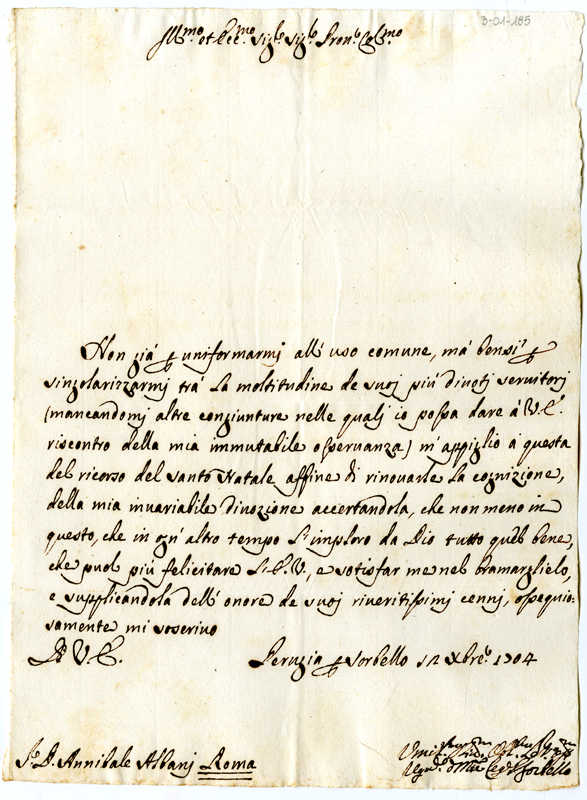 3-01-185
Ill.mo et Ecc.mo Sig.r Sig.r Pron.e Col.mo
Non già p uniformarmj all'uso comune, mà bensì p
singolarizzarmj trà la moltitudine de suoj più diuotj seruitorj
(mancandomj altre congiunture nelle qualj io possa dare à V.E.
riscontro della mia immutabile osseruanza) m'appiglio à questa
del ricorso del Santo Natale affine di rinouarle la cognizione,
della mia inuariabile diuozione accertandola, che non meno in
questo, che in ogn'altro tempo l'imploro da Dio tutto quel bene,
che puol più felicitare l'E.V., e sotisfar me nel bramarglielo,
e supplicandola dell'onore de suoj riueritissimj cennj, ossequio:
samente mi soscriuo
D V.E.
Perugia p Sorbello 12 Xbre 1704
S.r D. Annibale Albanj Roma
Sorbello